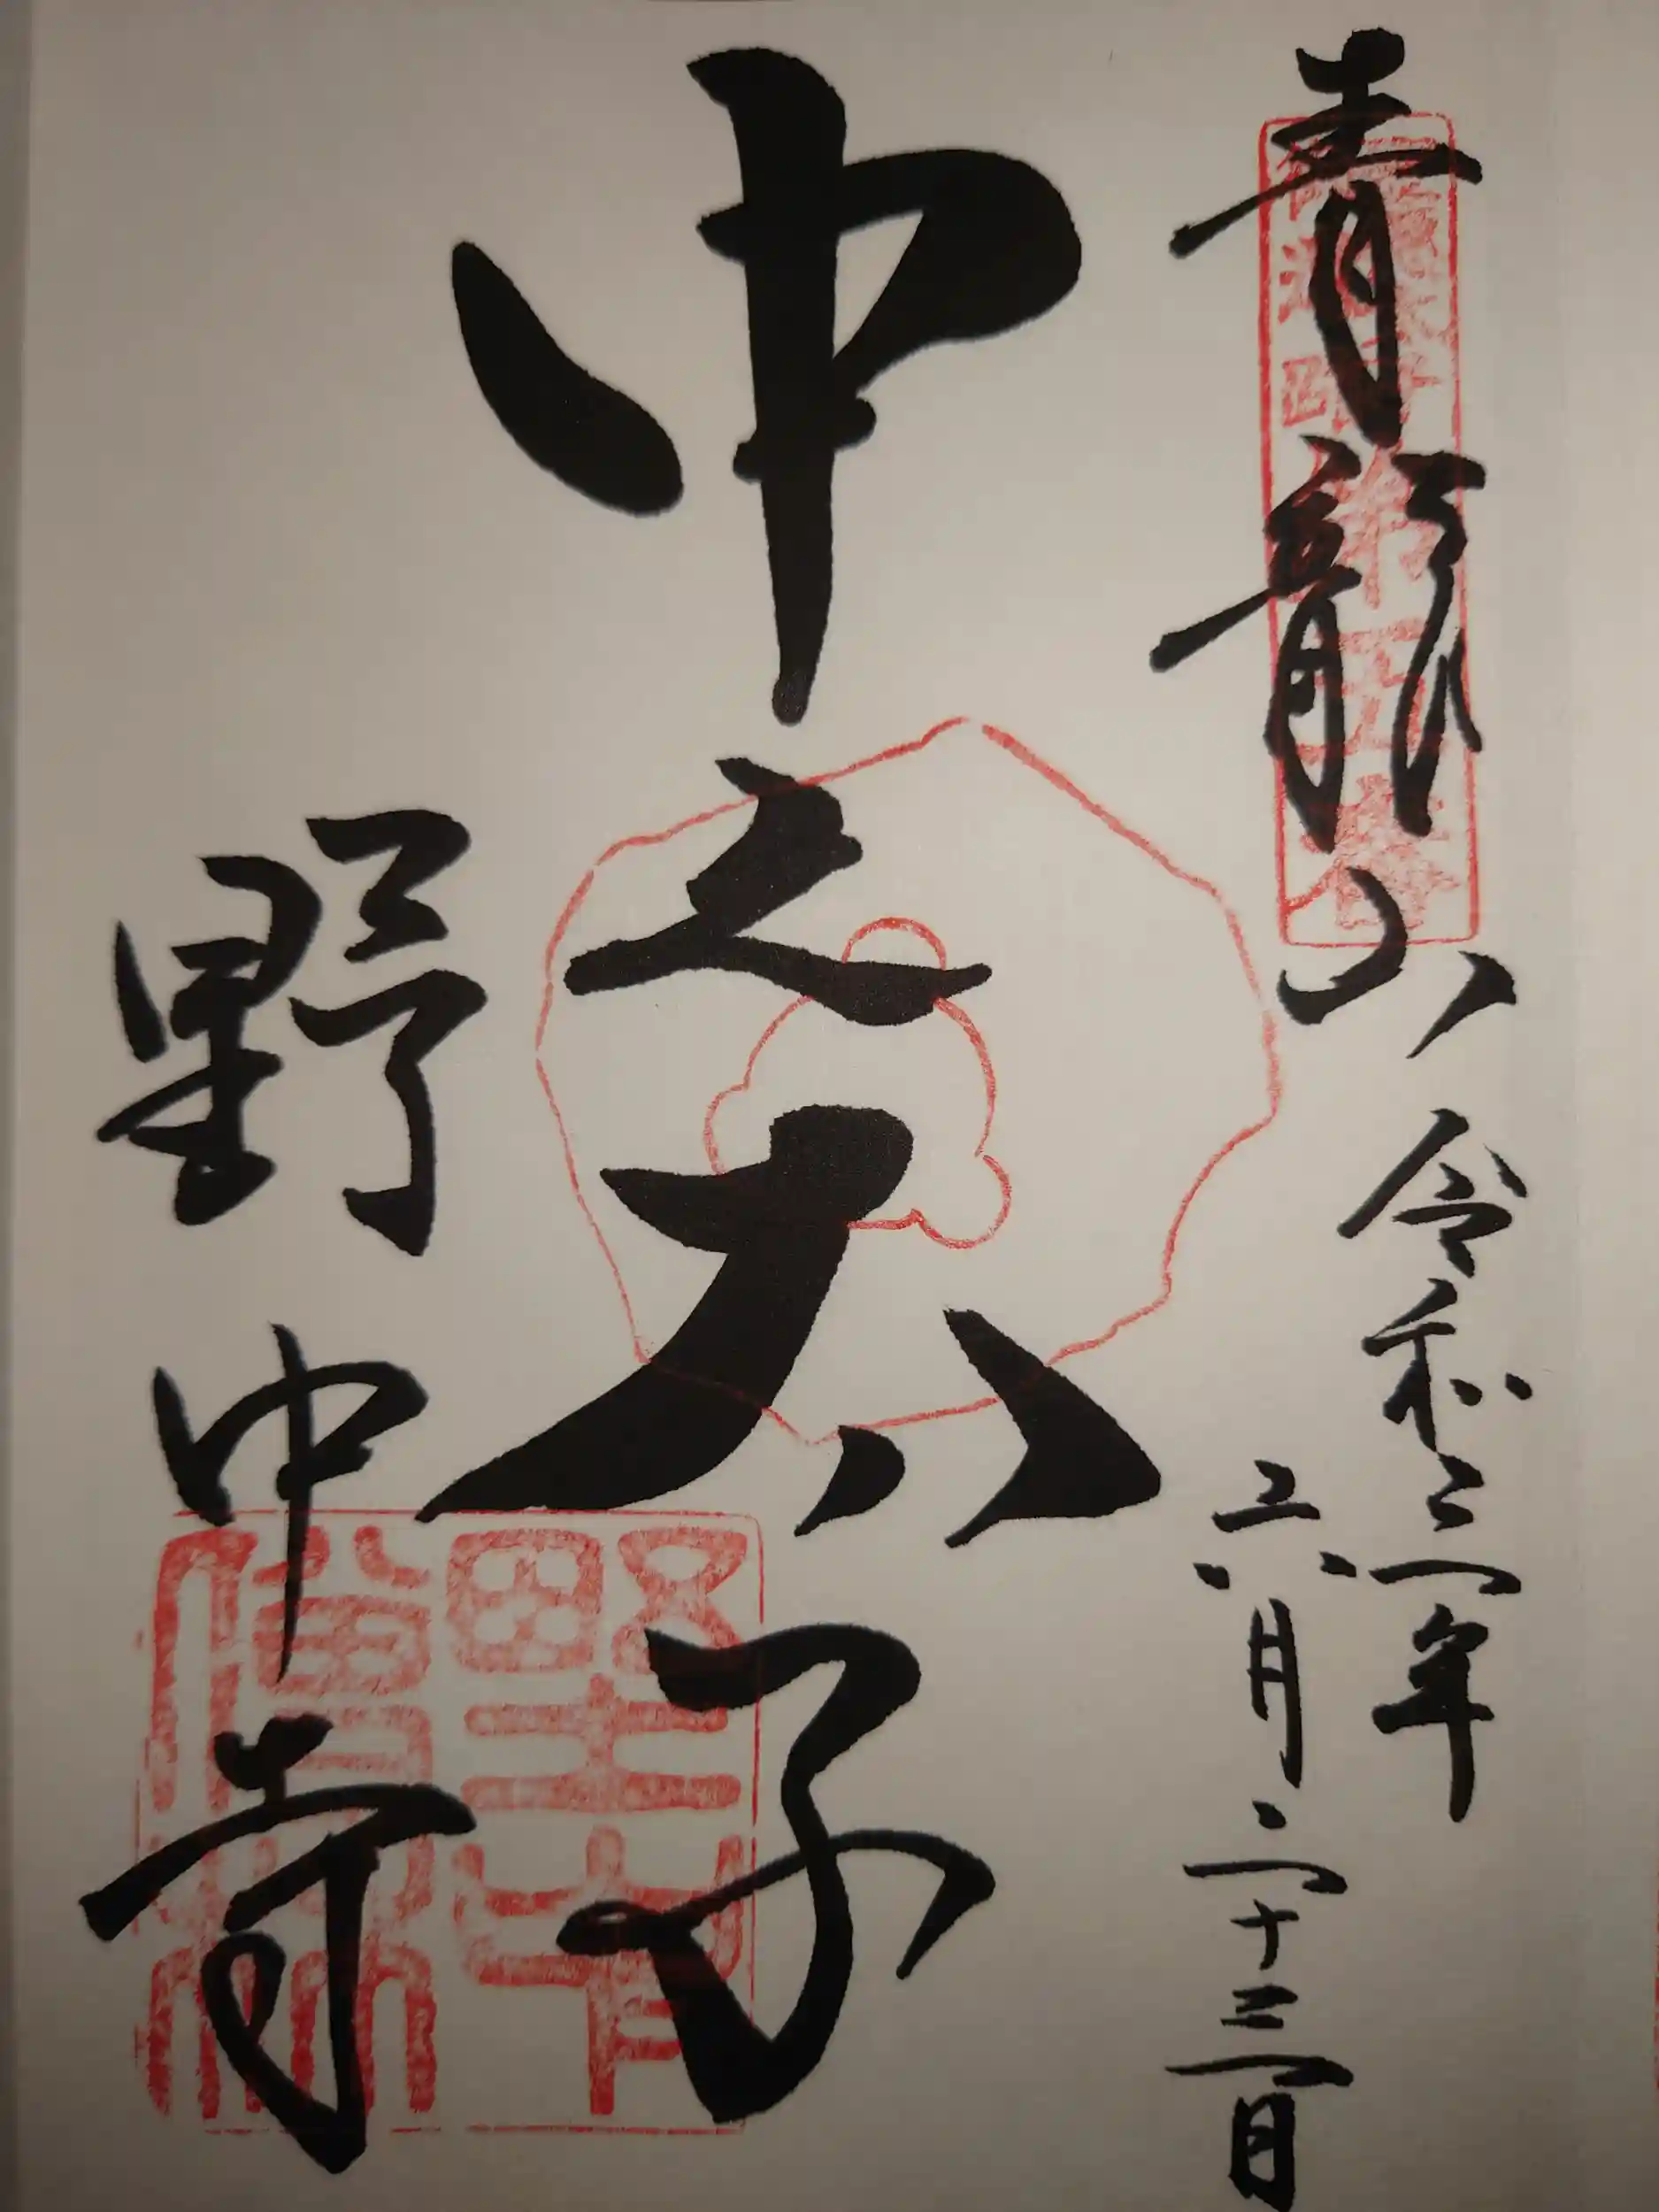 青龍山
令和三年
六月二十三日
中之太子
野中寺
野中寺僧